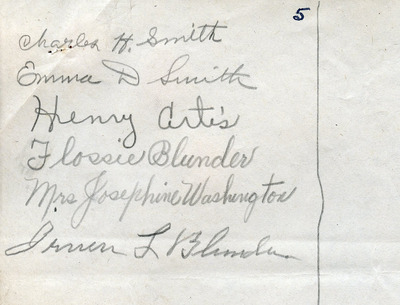 5
Charles H. Smith
Emma D Smith
Henry Artis
Flossie Blunder
Mrs Josephine Washington
L Blunder